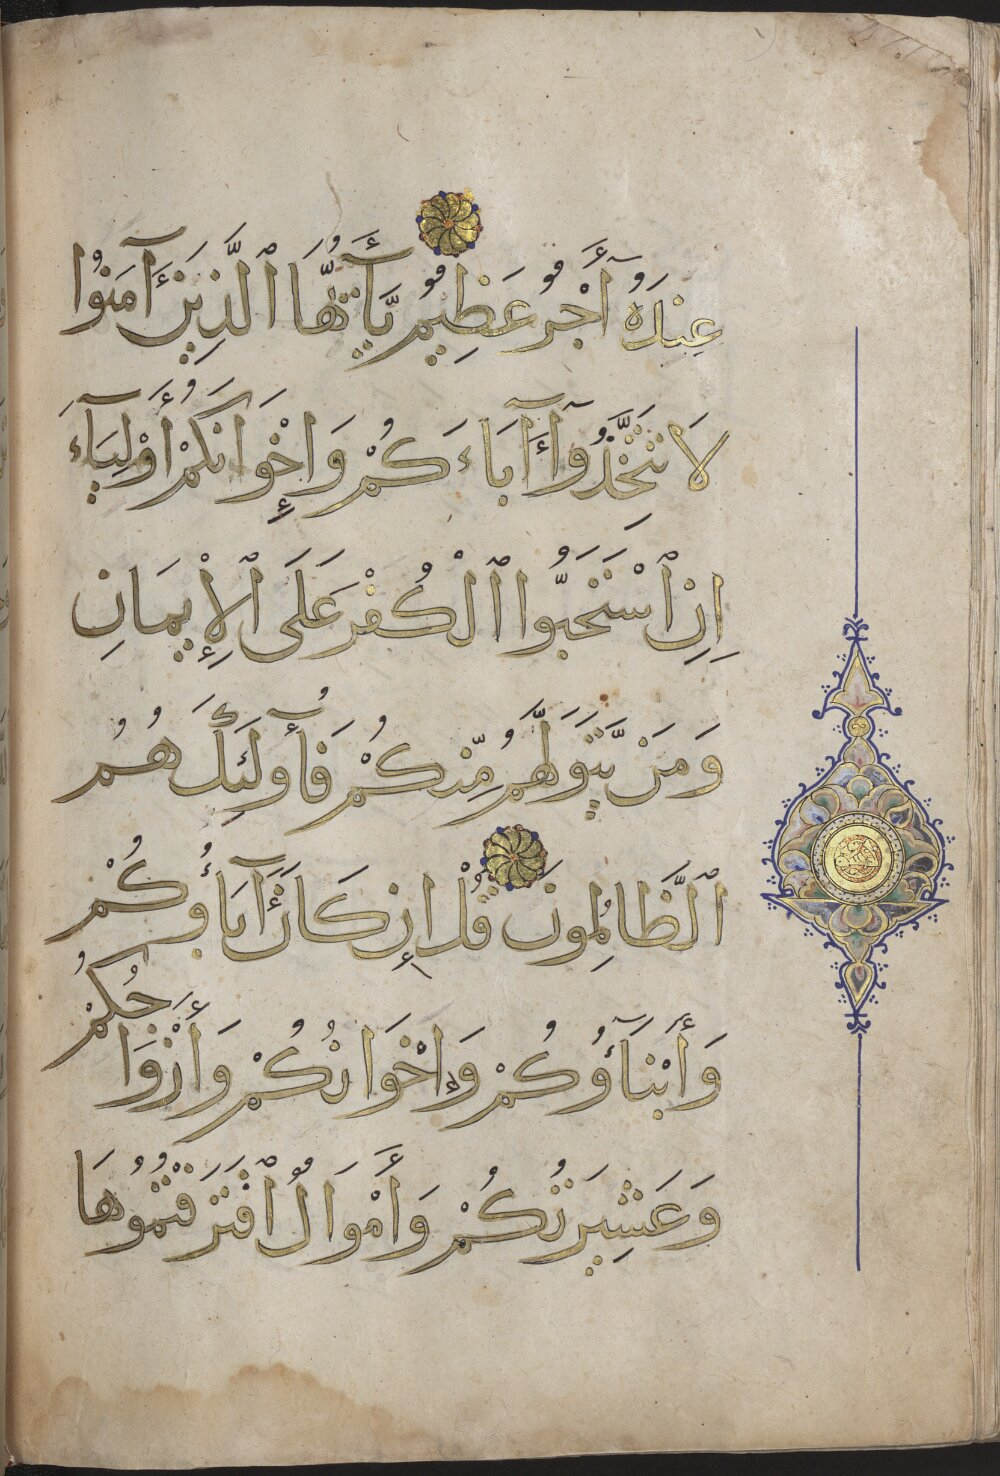 عِندَهُ أَجْرٌ عَظِيمٌ يَٰٓأَيُّهَا ٱلَّذِينَ ءَامَنُوا
لَا تَتَّخِذُوٓا ءَابَآءَكُمْ وَإِخْوَانَكُمْ أَوْلِيَآءَ
إِنِ ٱسْتَحَبُّوا ٱلْكُفْرَ عَلَى ٱلْإِيمَانِ
وَمَن يَتَوَلَّهُم مِّنكُمْ فَأُولَٰٓئِكَ هُمُ
ٱلظَّالِمُونَ قُلْ إِن كَانَ ءَابَآؤُكُمْ
وَأَبْنَآؤُكُمْ وَإِخْوَانُكُمْ وَأَزْوَاجُكُمْ
وَعَشِيرَتُكُمْ وَأَمْوَالٌ ٱقْتَرَفْتُمُوهَا